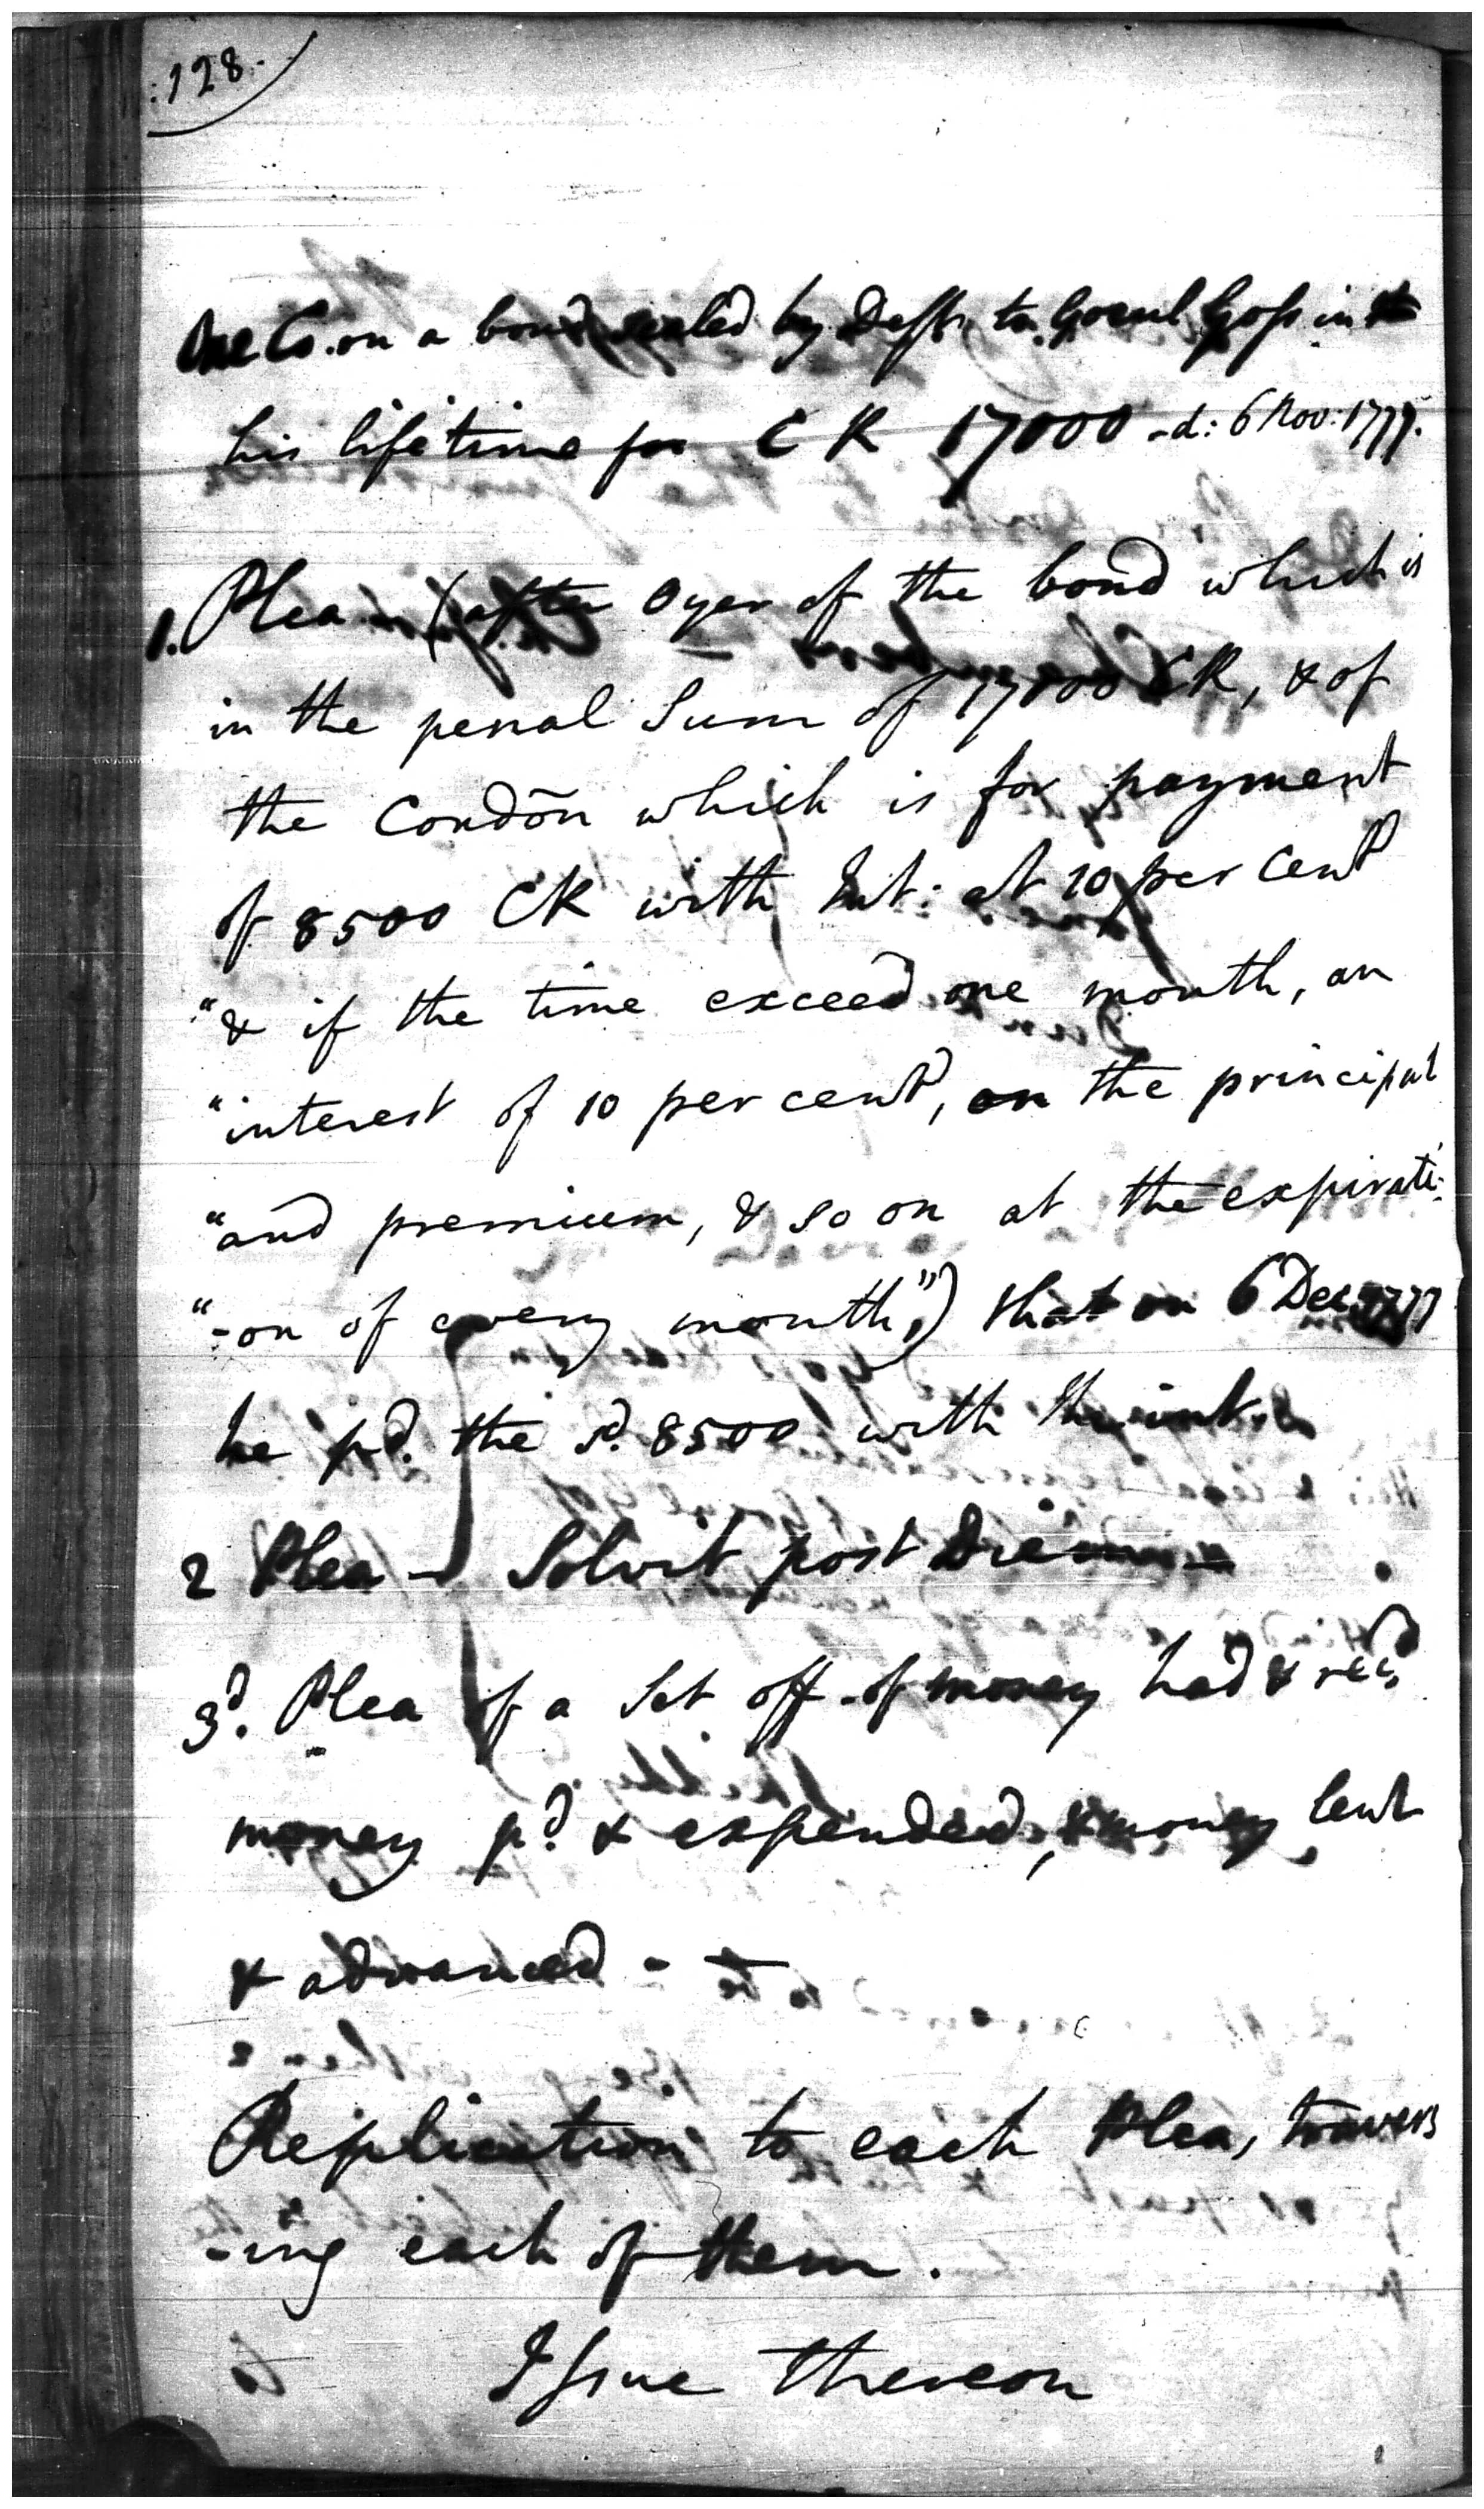 :128.-
One Co. on a bond sealed by Deft. to Gocul Goss in
his lifetime for C R 17000 - d: 6 Nov: 1777.
1. Plea - (after Oyer of the bond which is
in the penal Sum of 17000 CR, & of
the Condōn which is for payment
of 8500 CR with Int: at 10 per Cent
"& if the time exceed one month, an
"interest of 10 per cent, on the principal
"and premium, & so on at the expirati-
"-on of every month,") that on 6 Dec 1777
he pd. the sd. 8500 with the int.
2 Plea - Solvit post Diem -
3d. Plea of a Set off - of money had & recd
money pd & expended, & money lent
& advanced -
Replication to each Plea, travers
-ing each of them.
Issue thereon